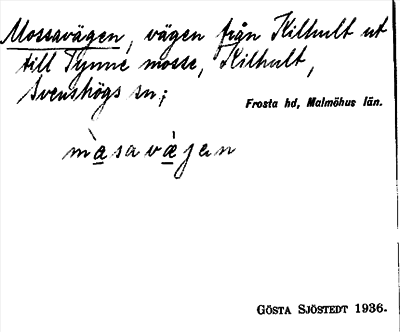 Mossavägen, vägen från Kilhult ut
till Tynne mosse, Kilhult,
Svenshögs sn;
Frosta hd, Malmöhus län.
m̀asavàjan
GÖSTA SJÖSTEDT 1936.